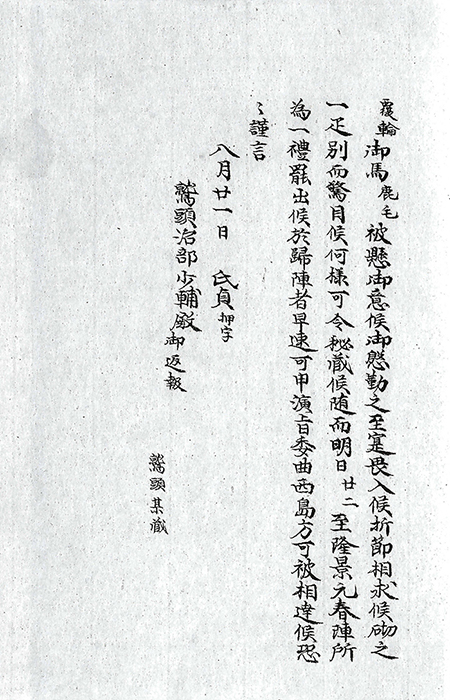 覆輪御馬鹿毛被懸御意候御懇勤之至寔畏入候折節相求候砌之
一疋別而驚目候何様可令秘蔵候随而明日廿二至隆景元春陣所
為一禮罷出候於歸陣者早速可申演旨委曲西島方可被相達候恐
〻謹言
八月廿一日 氏貞押字
鷲頭治部少輔殿御返報
鷲頭某蔵